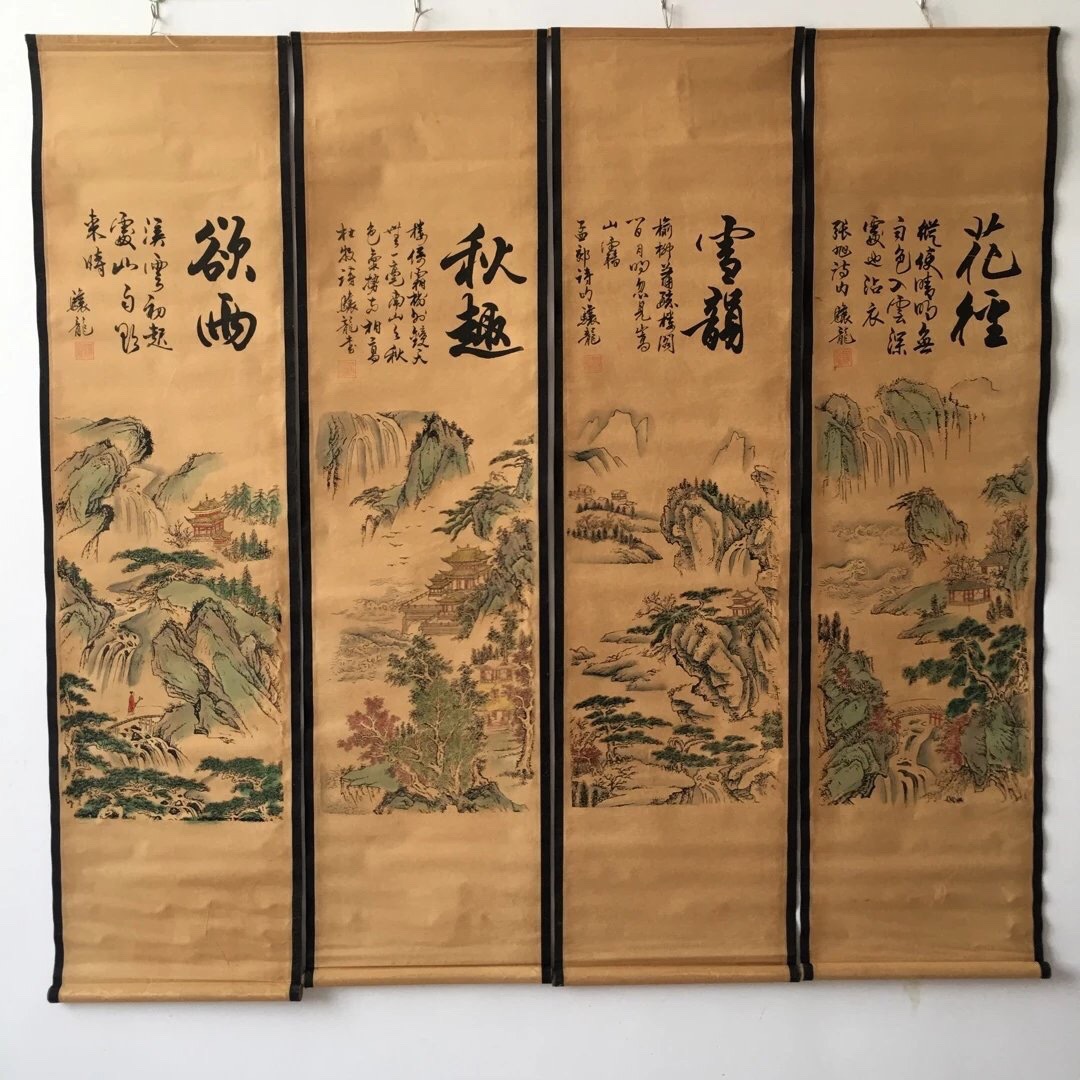 花徑
縱使晴明無
雨色入雲深
處亦沾衣
張旭詩句 驤龍
雪韻
榆柳蕭疏樓閣
閑月明忽見嵩
山雪
孟郊詩句 驤龍
秋趣
樓倚霜樹外鏡天
無一毫南山與秋
色氣勢兩相高
杜牧詩 驤龍書
欲雨
溪雲初起
處山雨欲
來時 驤龍